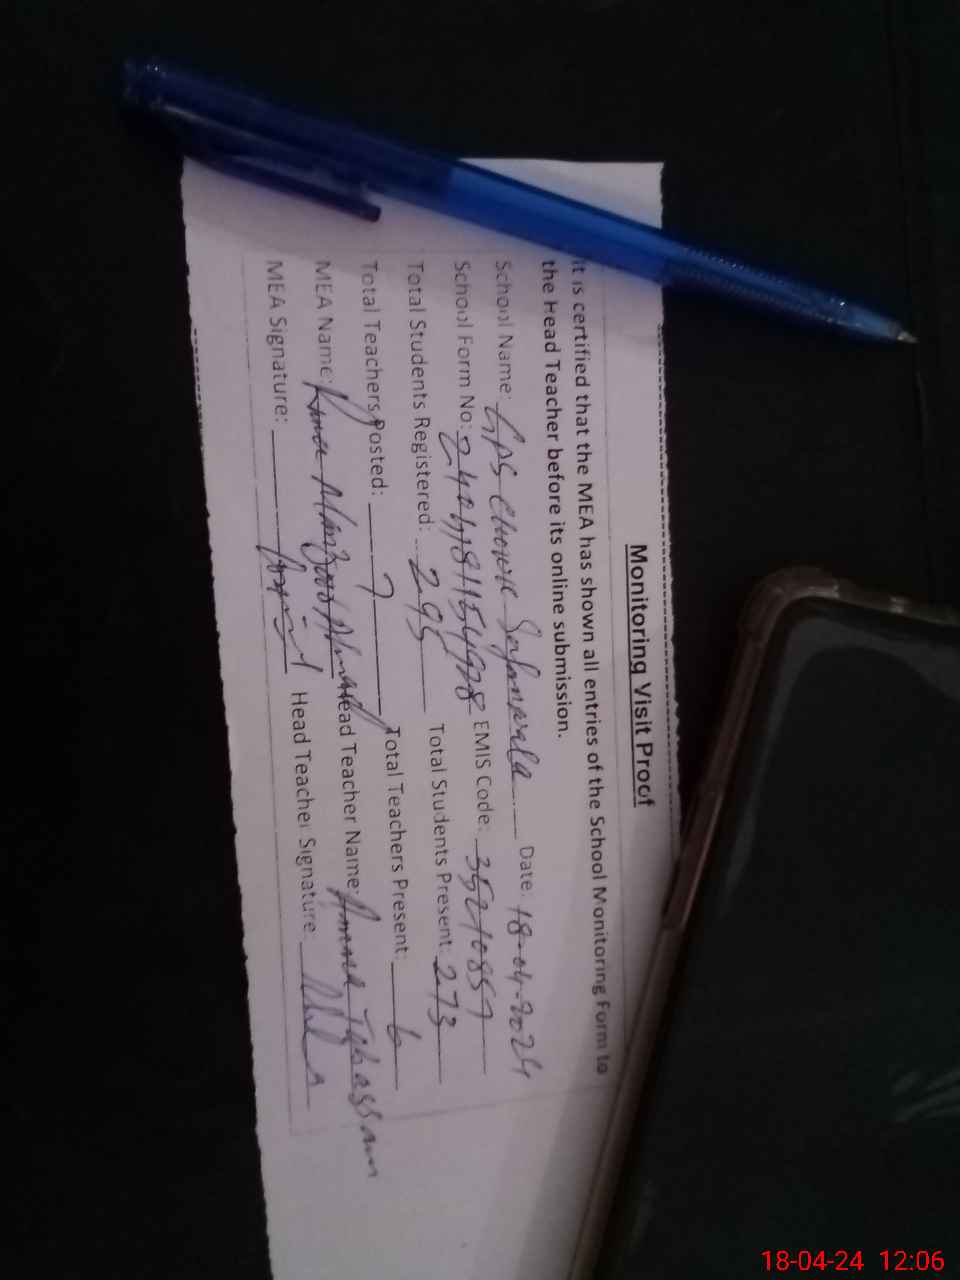 Monitoring Visit Proof
it is certified that the MEA has shown all entries of the School Monitoring Form to
the Head Teacher before its online submission.
School Name: GPS Chowk Date: 18-04-2024
School Form No: EMIS Code: 35210857
Total Students Registered: 295 Total Students Present: 273
Total Teachers Posted: 7 Total Teachers Present: 6
MEA Name: Head Teacher Name:
MEA Signature: Head Teacher Signature:
18-04-24 12:06